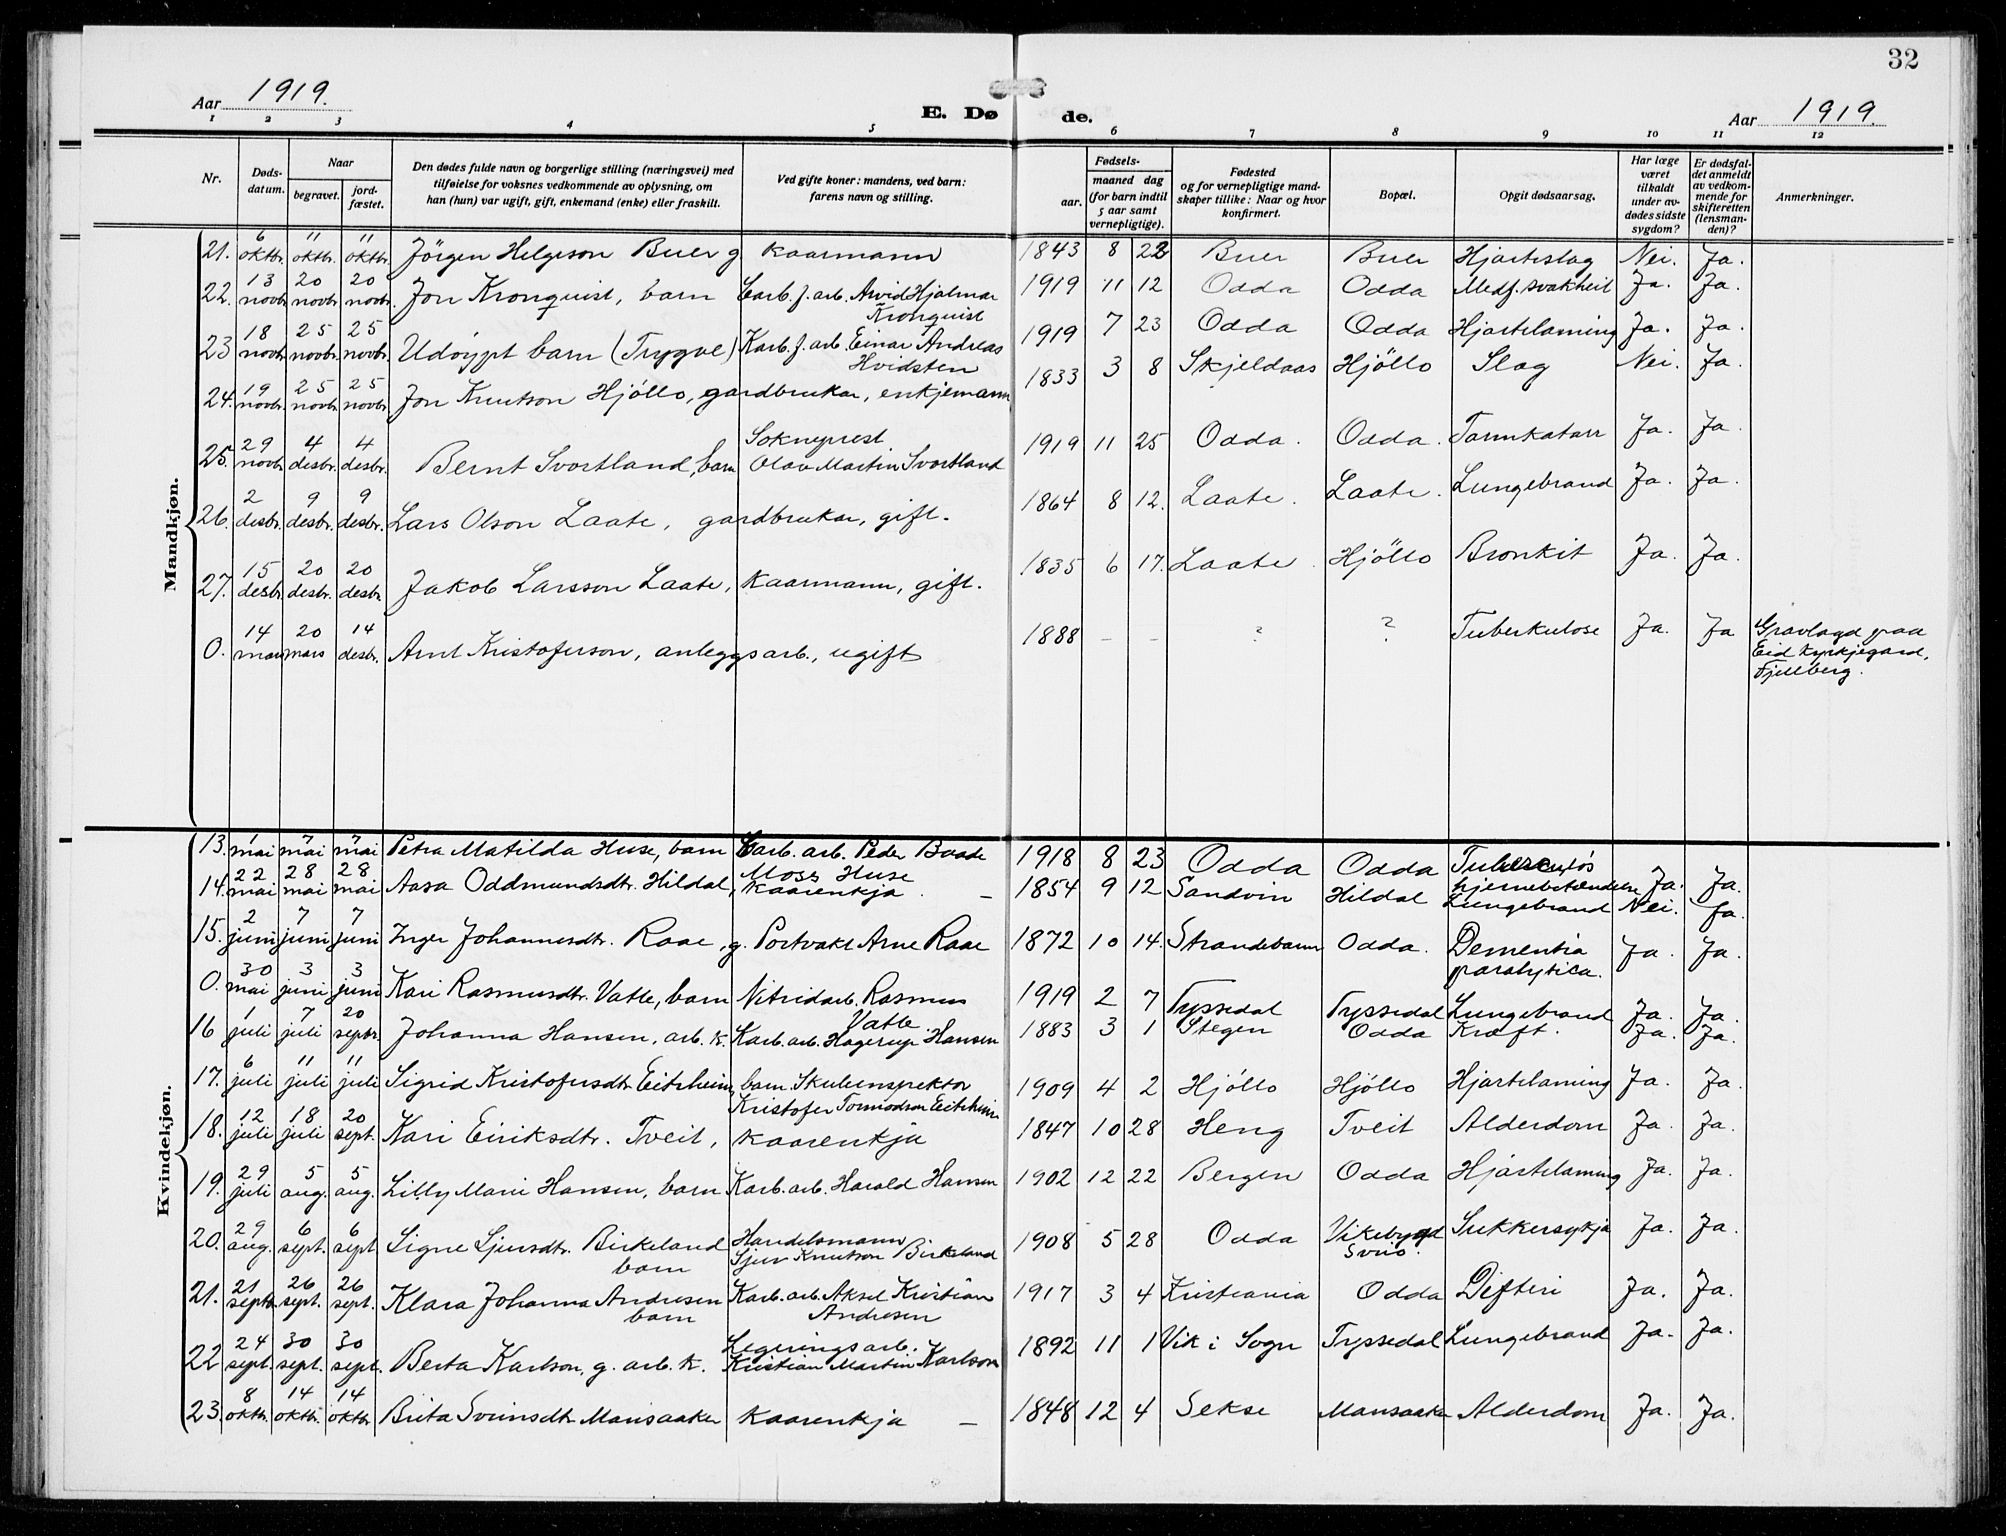 32
Aar 1919.
E. Dø de.
Aar 1919.
1 2 3 4 5 6 7 8 9 10 11 12
Nr.
Døds-
datum.
Naar
begravet.
jord-
fæstet.
Den dødes fulde navn og borgerlige stilling (næringsvei) med
tilføielse for voksnes vedkommende av oplysning, om
han (hun) var ugift, gift, enkemand (enke) eller fraskilt.
Ved gifte koner: mandens, ved barn:
farens navn og stilling.
Fødsels-
aar.
maaned dag
(for barn indtil
5 aar samt
vernepligtige).
Fødested
og for vernepligtige mand-
skaper tillike: Naar og hvor
konfirmert.
Bopæl.
Opgit dødsaarsag.
Har læge
været
tilkaldt
under av-
dødes sidste
sygdom?
Er dødsfal-
det anmeldt
av vedkom-
mende for
skifteretten
(lensman-
den)?
Anmerkninger.
Mandkjøn.
21. 6 oktbr. 11 oktbr. 11 oktbr. Jörgen Helgeson Buer g kaarmann 1843 8 22 Buer Buer Hjarteslag Nei. Ja.
22. 13 novbr. 20 novbr. 20 novbr. Jon Kronquist, barn Carb.f.arb. Arvid Hjalmar
Kronquist 1919 11 12 Odda Odda Medf. svakheit Ja. Ja.
23 18 novbr. 25 novbr. 25 novbr. Udöypt barn (Trygve) Karb.f.arb. Einar Andreas
Hvidsten 1919 7 23 Odda Odda Hjartelaming Ja. Ja.
24. 19 novbr. 25 novbr. 25 novbr. Jon Knutson Hjöllo, gardbrukar, enkjemann 1833 3 8 Skjeldaas Hjöllo Slag Nei. Ja.
25. 29 novbr. 4 desbr. 4 desbr. Bernt Svortland, barn Sokneprest
Olav Martin Svortland 1919 11 25 Odda. Odda. Tarmkatarr Ja. Ja.
26. 2 desbr. 9 desbr. 9 desbr. Lars Olson Laate, gardbrukar, gift. 1864 8 12. Laate. Laate. Lungebrand Ja. Ja.
27. 15 desbr. 20 desbr. 20 desbr. Jakob Larsson Laate, kaarmann, gift. 1835 6 17. Laate. Hjöllo Bronkit Ja. Ja.
0. 14 mars 20 mars 14 desbr. Arnt Kristoferson, anleggsarb., ugift 1888 – – ? ? Tuberkulose Ja. Ja Gravlagd paa
Eid Kyrkjegard,
Fjellberg.
Kvindekjøn.
13. 1 mai 7 mai 7 mai Petra Matilda Huse, barn Carb. arb. Peder Baade
Moss Huse 1918 8 23 Odda Odda Tuberculös
hjernebetændelse Ja. Ja.
14. 22 mai 28 mai 28 mai Aasa Oddmundsdtr. Hildal, kaarenkja. – 1854 9 12 Sandvin Hildal Lungebrand Nei. Ja.
15. 2 juni 7 juni 7 juni Inger Johannesdtr. Raae, g. Portvakt Arne Raae 1872 10 14. Strandebarm Odda. Dementia
paralytica. Ja. Ja.
0. 30 mai 3 juni 3 juni Kari Rasmusdtr. Vatle, barn Nitridarb. Rasmus
Vatle. 1919 2 7 Tyssedal Tyssedal Lungebrand Ja. Ja.
16 1 juli 7 juli 20 septr. Johanna Hansen, arb. k. Karb. arb. Hagerup Hansen 1883 3 1 Stegen Odda Kræft. Ja. Ja.
17. 6 juli 11 juli 11 juli Sigrid Kristofersdtr Eitrheim, barn. Skuleinspektör
Kristofer Tormodson Eitrheim 1909 4 2 Hjöllo Hjöllo Hjartelaming Ja. Ja.
18. 12 juli 18 juli 20 sept. Kari Eiriksdtr. Tveit, kaarenkja 1847 10 28 Heng Tveit Alderdom Ja. Ja.
19. 29 juli 5 aug. 5 aug. Lilly Marie Hansen, barn Karb. arb. Harald Hansen 1902 12 22 Bergen Odda Hjartelaming Ja. Ja.
20. 29 aug. 6 sept. 6 sept Signe Sjursdtr. Birkeland
barn Handelsmann
Sjur Knutson Birkeland 1908 5 28 Odda Vikebygd
Sveio. Sukkersykja Ja. Ja.
21. 21 septbr. 26 sept. 26 sept. Klara Johanna Andresen
barn Karb. arb. Aksel Kristian
Andresen 1917 3 4 Kristiania Odda Difteri Ja. Ja.
22 24 sept. 30 sept. 30 sept. Berta Karlson, g. arb. k. Legeringsarb.
Kristian Martin Karlson 1892 11 1 Vik i Sogn Tyssedal Lungebrand Ja. Ja.
23. 8 oktbr. 14 oktbr. 14 oktbr Brita Sveinsdtr Mansaaker kaarenkja – 1848 12 4 Sekse Mansaaker Alderdom Ja. Ja.